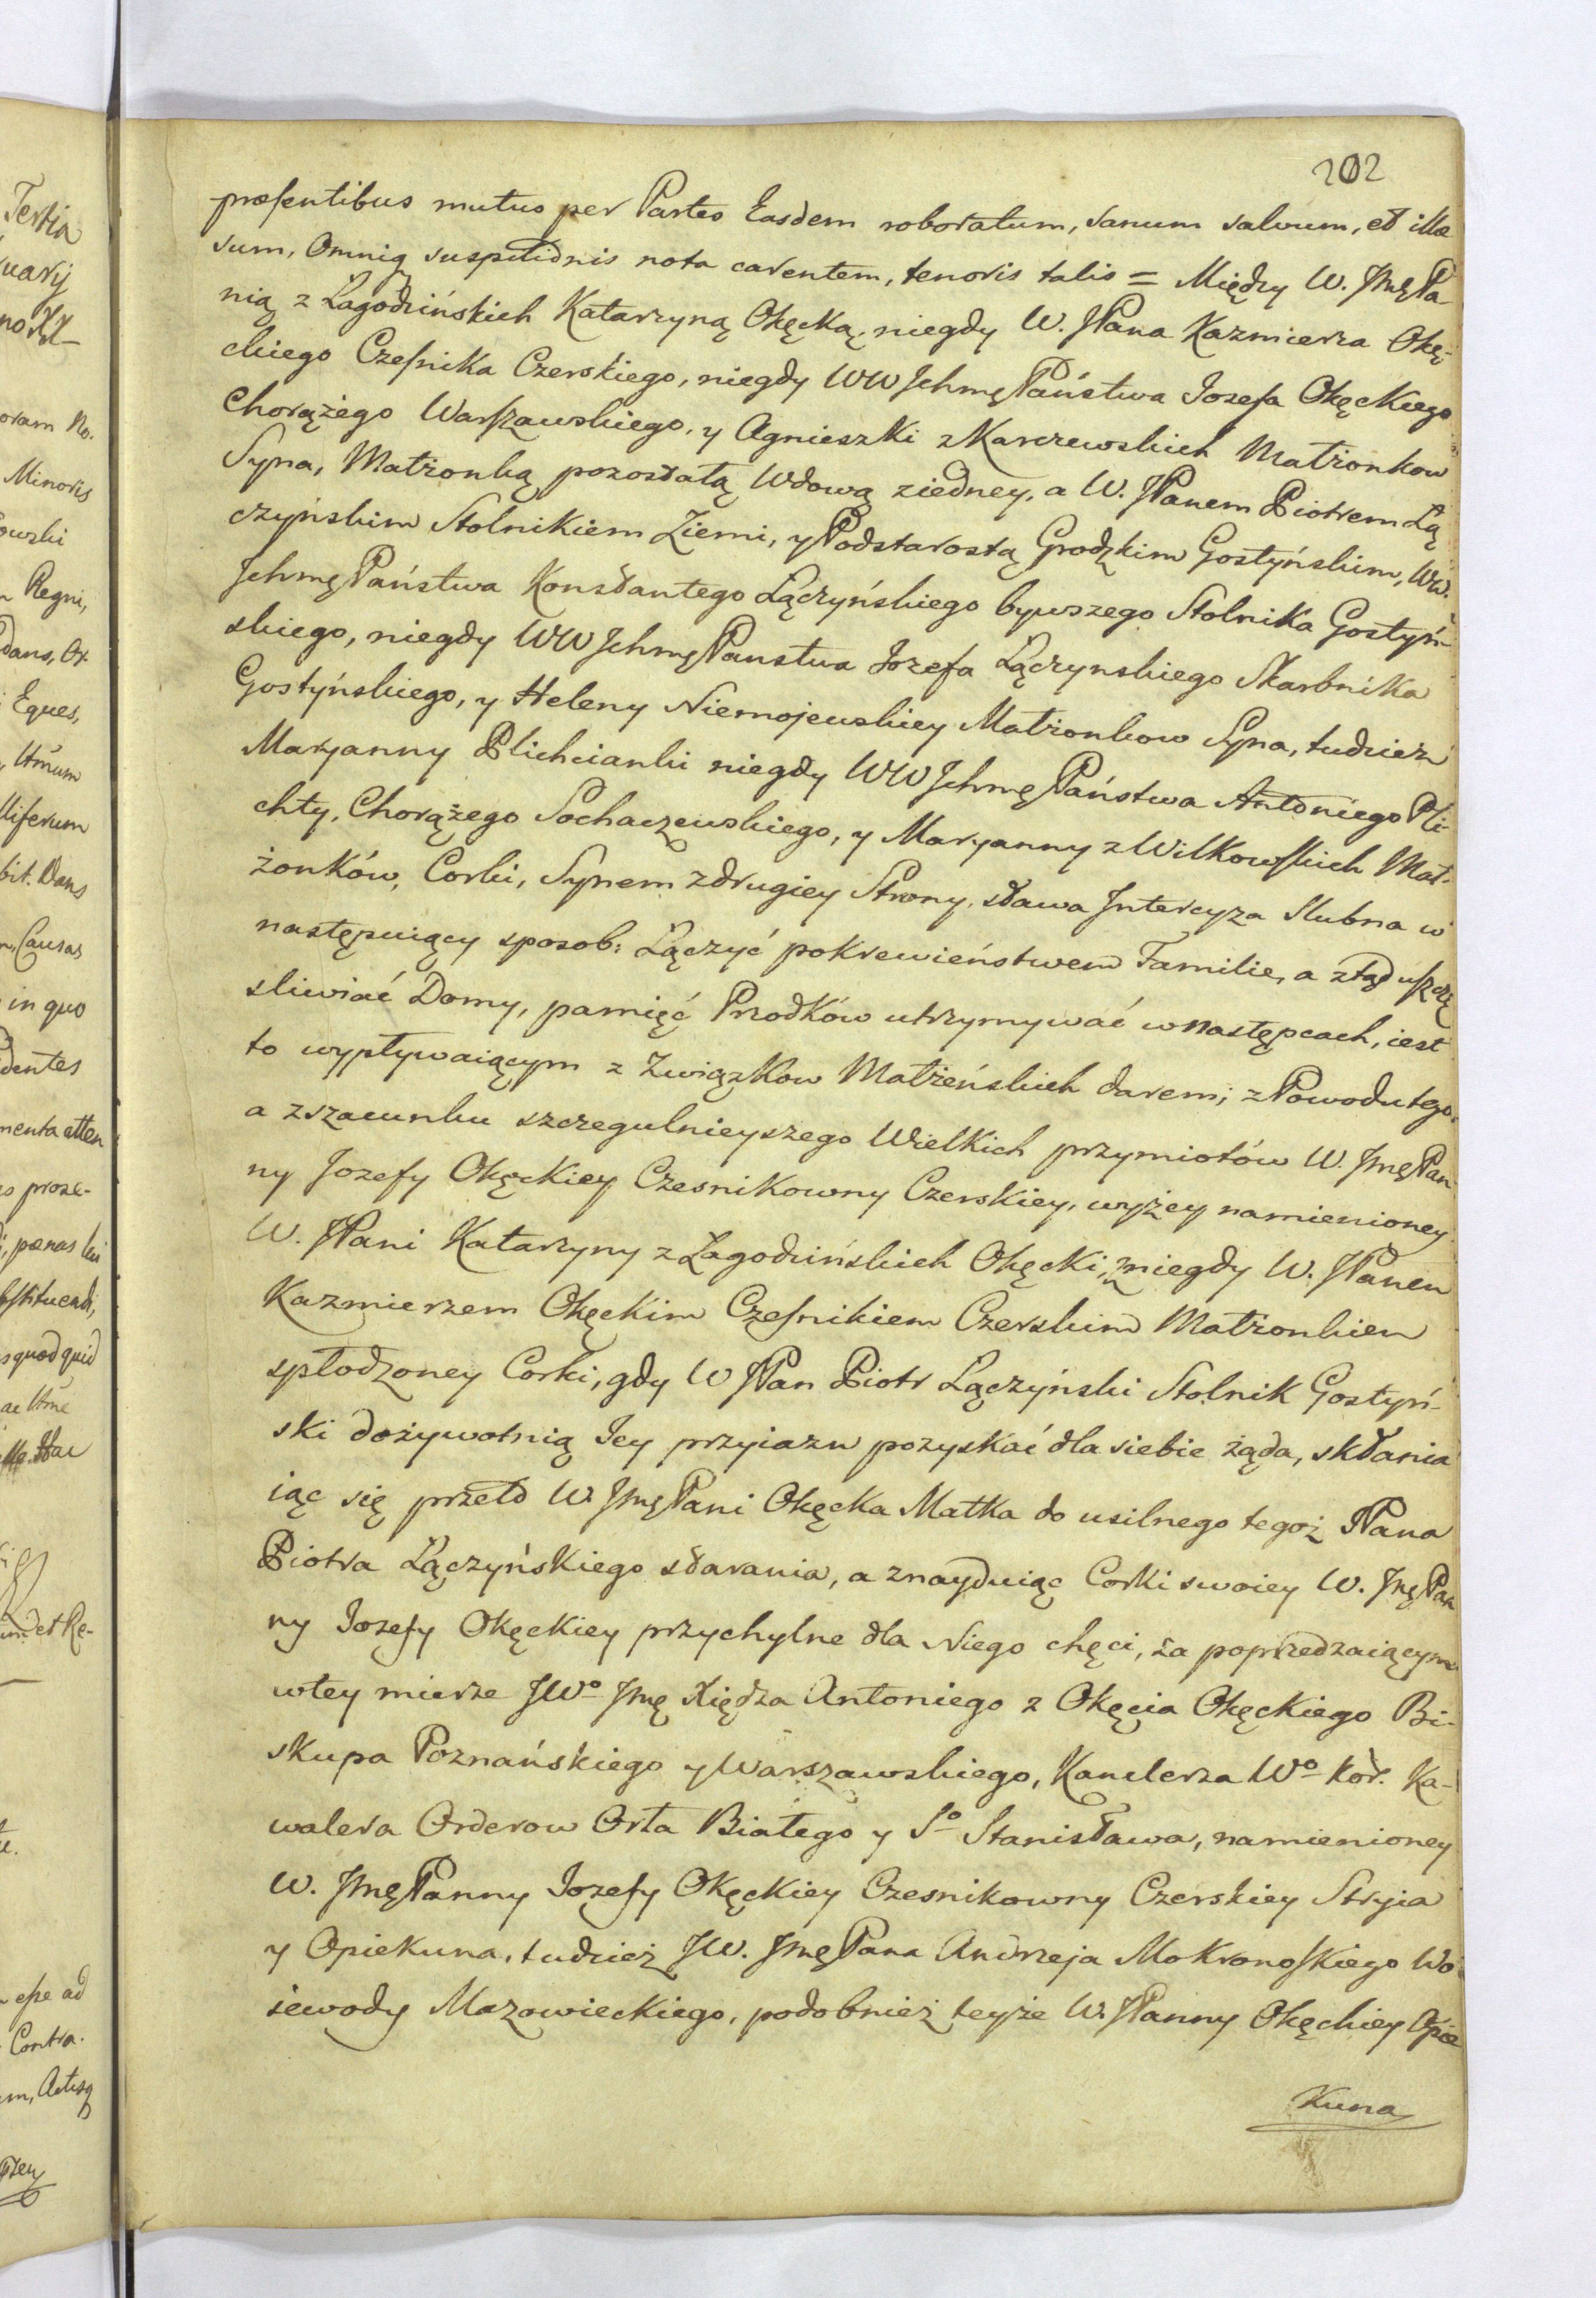 202
præsentibus mutuo per Partes Easdem roboratum, sanum salvum, et illæ
sum, Omniq suspitionis nota carentem, tenoris talis = Między W. JmęPa
nią z Łagodzińskich Katarzyną Okęcką, niegdy W. JPana Kazmierza Okę-
ckiego Czesnika Czerskiego, niegdy WW JchmęPaństwa Jozefa Okęckiego
Chorążego Warszawskiego, y Agnieszki z Karczewskich Małżonkow
Syna, Małżonką pozostałą Wdową ziedney, a W. JPanem Piotrem Łą
czyńskim Stolnikiem Ziemi, y Podstarostą Grodzkim Gostyńskim, WW.
JchmęPaństwa Konstantego Łączyńskiego bywszego Stolnika Gostyń-
skiego, niegdy WW JchmęPanstwa Jozefa Łączynskiego Skarbnika
Gostyńskiego, y Heleny Niemojewskiey Małżonkow Syna, tudzież
Maryanny Plichcianki niegdy WW JchmęPaństwa Antoniego Pli-
chty, Chorążego Sochaczewskiego, y Maryanny z Wilkowskich Mał-
żonków, Corki, Synem z drugiey Strony, stawa Jntercyza Slubna w
następuiący sposob: Łączyć pokrewieństwem Familie, a ztąd uszczę
sliwiać Domy, pamięć Przodków utrzymywać w następcach, iest
to wypływaiącym z Związkow Małżeńskich darem; z Powodu tego,
a zszacunku szczegulnieyszego Wielkich przymiotów W. JmęPan-
ny Jozefy Okęckiey Czesnikowny Czerskiey, wyżey namienioney
W. JPani Katarzyny z Łagodzińskich Okęcki, zniegdy W. JPanem
Kazmierzem Okęckim Czesnikiem Czerskim Małżonkiem
spłodzoney Corki, gdy W JPan Piotr Łączyński Stolnik Gostyń-
ski dożywotnią Jey przyiazn pozyskać dla siebie żąda, skłania
iąc się przeto W. JmęPani Okęcka Matka do usilnego tegoż JPana
Piotra Łączyńskiego starania, a znayduiąc Corki swoiey W. JmęPan
ny Jozefy Okęckiey przychylne dla Niego chęci, za poprzedzaiącym
wtey mierze JWo Jmę Xiędza Antoniego z Okęcia Okęckiego Bi-
skupa Poznańskiego y Warszawskiego, Kanclerza Wo Kor. Ka-
walera Orderow Orła Białego y So Stanisława, namienioney
W. JmęPanny Jozefy Okęckiey Czesnikowny Czerskiey Stryia
y Opiekuna, tudzież JW. JmęPana Andrzeja Mokronoskiego Wo-
iewody Mazowieckiego, podobnież teyże W. JPanny Okęckiey Opie
Kuna